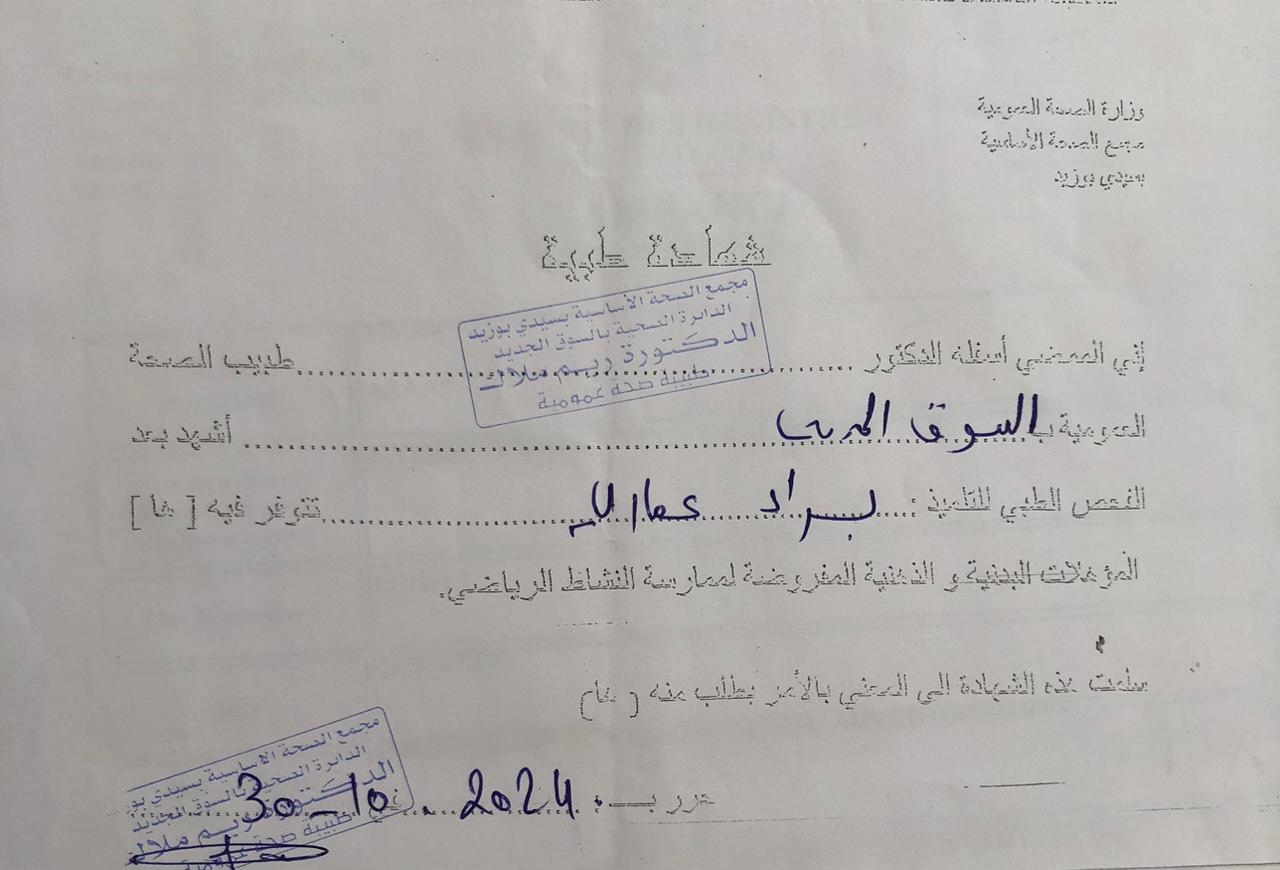 وزارة الصحة العمومية
مجمع الصحة الأساسية
بسيدي بوزيد
شهادة طبية
مجمع الصحة الأساسية بسيدي بوزيد
الدائرة الصحية بالسوق الجديد
الدكتورة ريم ملاك
طبيبة صحة عمومية
إني الممضي أسفله الدكتور ........ طبيب الصحة
العمومية بـ السوق ........ أشهد بعد
الفحص الطبي للتلميذ : ........ تتوفر فيه [ ها ]
المؤهلات البدنية و الذهنية المفروضة لممارسة النشاط الرياضي.
سلمت هذه الشهادة الى المعني بالأمر بطلب منه ( ها )
حرر بـ : 30-10.2024
مجمع الصحة الأساسية بسيدي بو
الدائرة الصحية بالسوق الجديد
الدكتورة ريم ملاك
طبيبة صحة عمومية